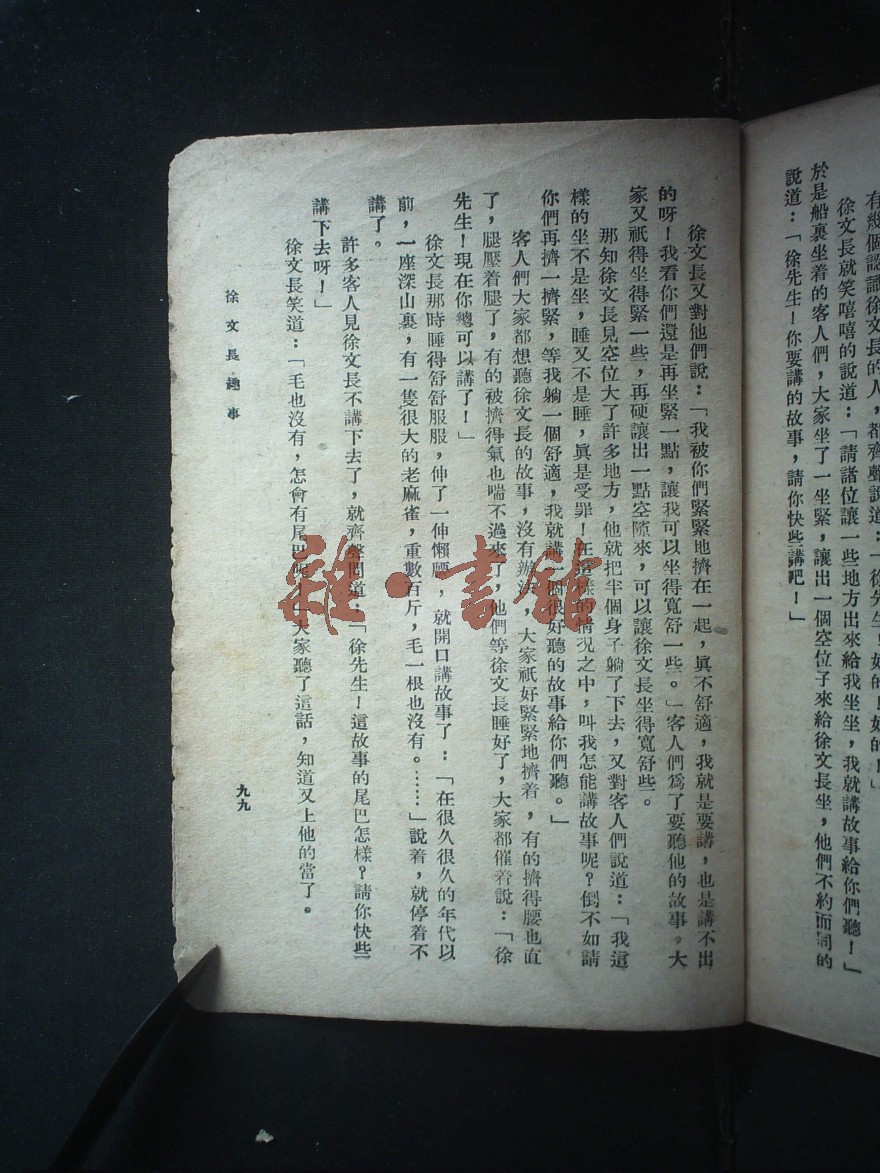 有幾個認識徐文長的人，都齊聲說道：「徐先生！好的！好的！」
徐文長就笑嘻嘻的說道：「請諸位讓一些地方出來給我坐坐，我就講故事給你們聽！」
於是船裏坐着的客人們，大家坐了一坐緊，讓出一個空位子來給徐文長坐，他們不約而同的
說道：「徐先生！你要講的故事，請你快些講吧！」
徐文長又對他們說：「我被你們緊緊地擠在一起，眞不舒適，我就是要講，也是講不出
的呀！我看你們還是再坐緊一點，讓我可以坐得寬舒一些。」客人們爲了要聽他的故事，大
家又祇得坐得緊一些，再硬讓出一點空隙來，可以讓徐文長坐得寬舒些。
那知徐文長見空位大了許多地方，他就把半個身子躺了下去，又對客人們說道：「我這
樣的坐不是坐，睡又不是睡，眞是受罪！在這樣的情況之中，叫我怎能講故事呢？倒不如請
你們再擠一擠緊，等我躺一個舒適，我就講一個很好聽的故事給你們聽。」
客人們大家都想聽徐文長的故事，沒有辦法，大家祇好緊緊地擠着，有的擠得腰也直
了，腿壓着腿了，有的被擠得氣也喘不過來了，他們等徐文長睡好了，大家都催着說：「徐
先生！現在你總可以講了！」
徐文長那時睡得舒舒服服，伸了一伸懶腰，就開口講故事了：「在很久很久的年代以
前，一座深山裏，有一隻很大的老麻雀，重數百斤，毛一根也沒有。……」說着，就停着不
講了。
許多客人見徐文長不講下去了，就齊聲問道：「徐先生！這故事的尾巴怎樣？請你快些
講下去呀！」
徐文長笑道：「毛也沒有，怎會有尾巴呢！」大家聽了這話，知道又上他的當了。
徐文長趣事
九九
雜·書館